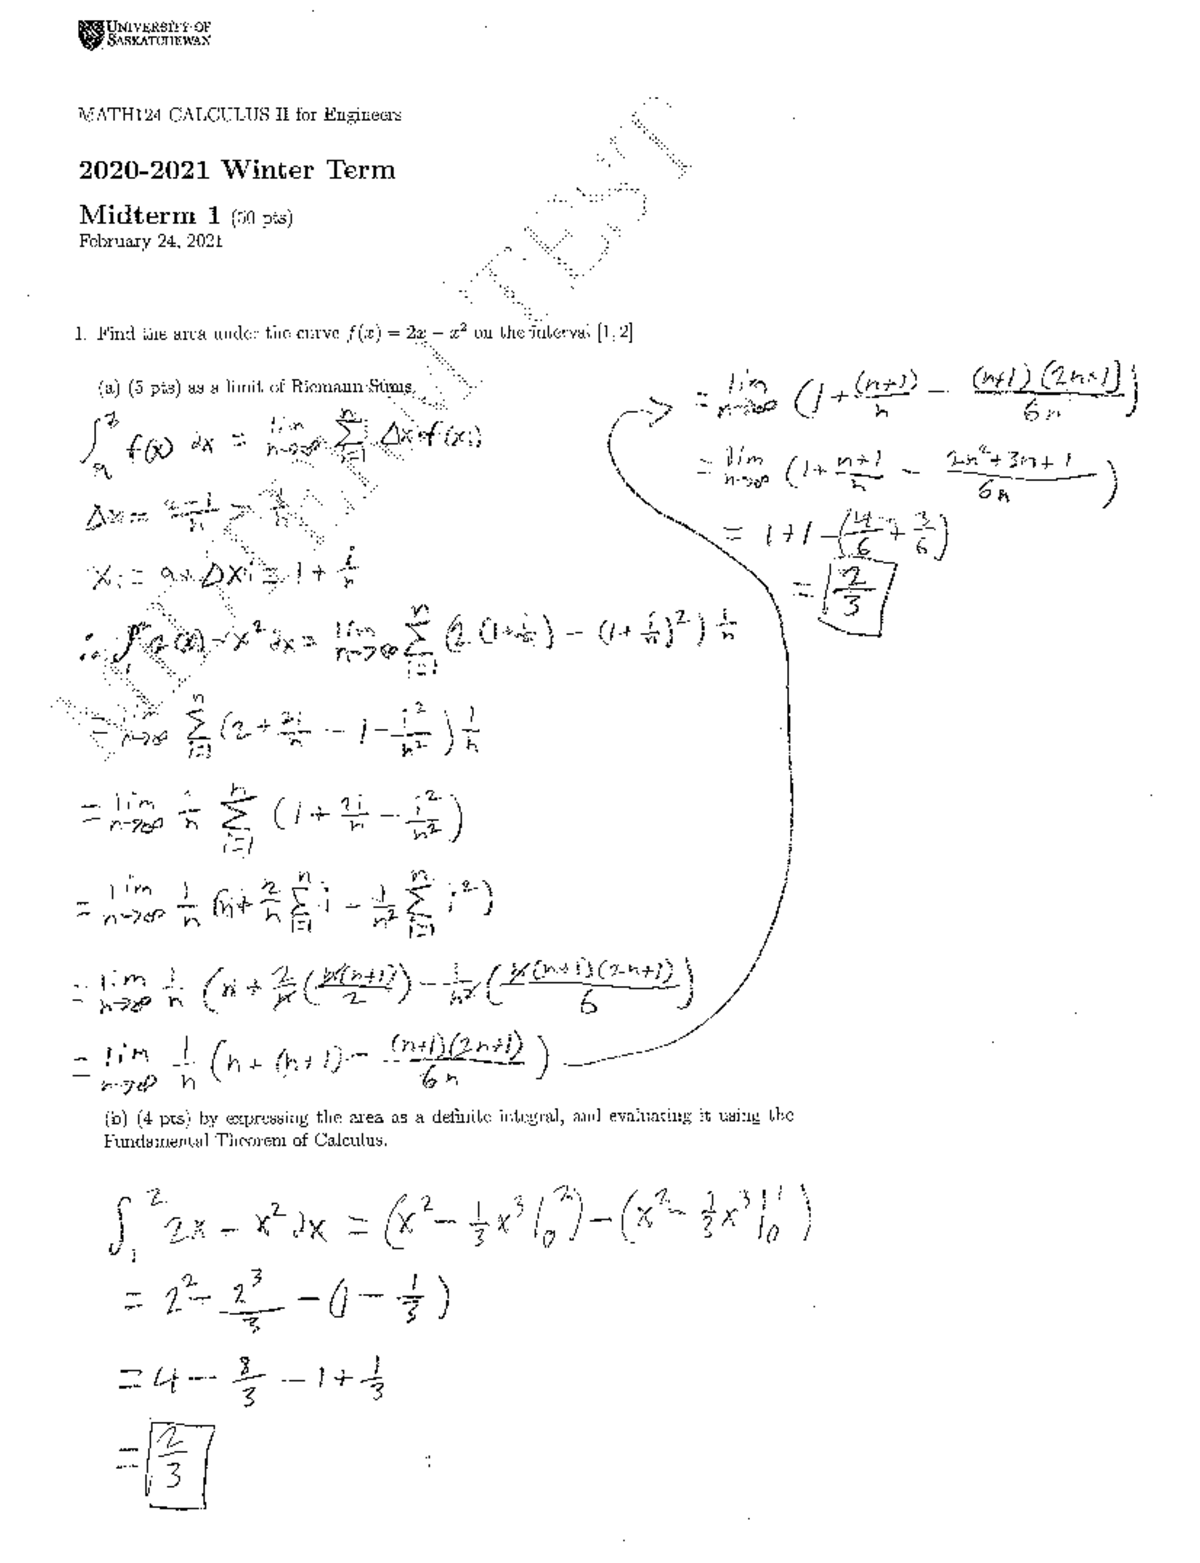 UNIVERSITY OF
SASKATCHEWAN
MATH124 CALCULUS II for Engineers
2020-2021 Winter Term
Midterm 1 (50 pts)
February 24, 2021
1. Find the area under the curve f(x) = 2x − x² on the interval [1, 2]
(a) (5 pts) as a limit of Riemann Sums.
∫ₐᵇ f(x) dx = lim n→∞ Σ i=1 n Δx f(xi)
Δx = (2−1)/n = 1/n
xi = a + Δxi = 1 + i/n
∴ ∫₁² 2(x) − x² dx = lim n→∞ Σ i=1 n (2(1+i/n) − (1+i/n)²) 1/n
= lim n→∞ Σ i=1 n (2 + 2i/n − 1 − i²/n²) 1/n
= lim n→∞ 1/n Σ i=1 n (1 + 2i/n − i²/n²)
= lim n→∞ 1/n (n + 2/n Σ i=1 n i − 1/n² Σ i=1 n i²)
= lim n→∞ 1/n (n + 2/n (n(n+1)/2) − 1/n² (n(n+1)(2n+1)/6)
= lim n→∞ 1/n (n + (n+1) − (n+1)(2n+1)/6n)
= lim n→∞ (1 + (n+1)/n − (n+1)(2n+1)/6n)
= lim n→∞ (1 + n+1/n − 2n²+3n+1/6n)
= 1 + 1 − (4/6 + 3/6)
= 2/3
(b) (4 pts) by expressing the area as a definite integral, and evaluating it using the
Fundamental Theorem of Calculus.
∫₁² 2x − x² dx = (x² − 1/3 x³ |₀²) − (x² − 1/3 x³ |₀¹)
= 2² − 2³/3 − (1 − 1/3)
= 4 − 8/3 − 1 + 1/3
= 2/3